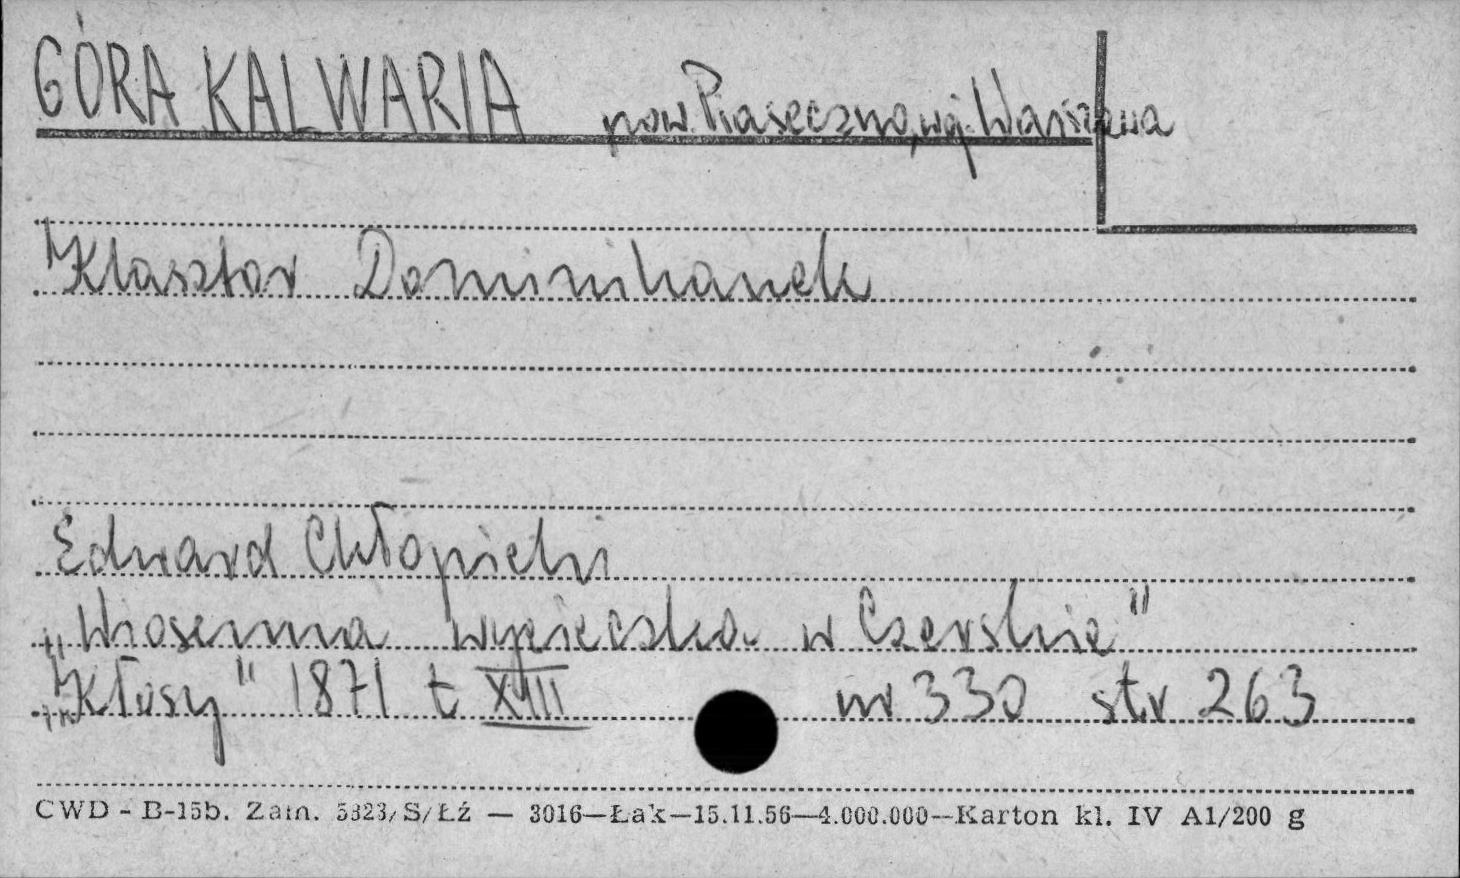 GÓRA KALWARIA pow. Piaseczno, woj. Warszawa
Klasztor Dominikanek
Edward Chłopicki
„Wiosenna wycieczka w Czerskie"
„Kłosy" 1871 t XIII nr 330 str 263
CWD - B-15b. Zam. 5323/S/Łź — 3016—Łak—15.11.56—4.000.000—Karton kl. IV A1/200 g